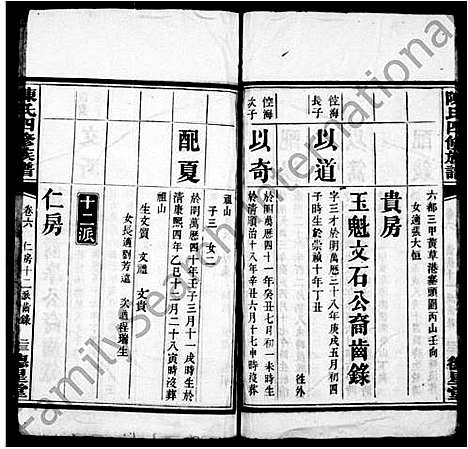 陳氏四修族譜
六都三甲黃草港嘉頭圍丙山壬向
女適張大恒
貴房
玉魁文石公裔齒錄
以道
長子
字三才於明萬歷三十八年庚戌五月初四
子時生於崇禎十年丁丑
徃外
以奇
次子
於明萬歷四十一年癸丑七月初一未時生
於清順治十八年辛丑六月十七申時沒葬
祖山
子三 女一
配夏
於明萬歷四十年壬子三月十一戌時生於
清康熙四年乙巳十二月二十八寅時沒葬
祖山
生文質 文禮 文貴
女長適劉芳遠 次適程瑞生
十二派
仁房
陳氏四修族譜
卷六 仁房十二派齒錄
德星堂
FamilySearch International